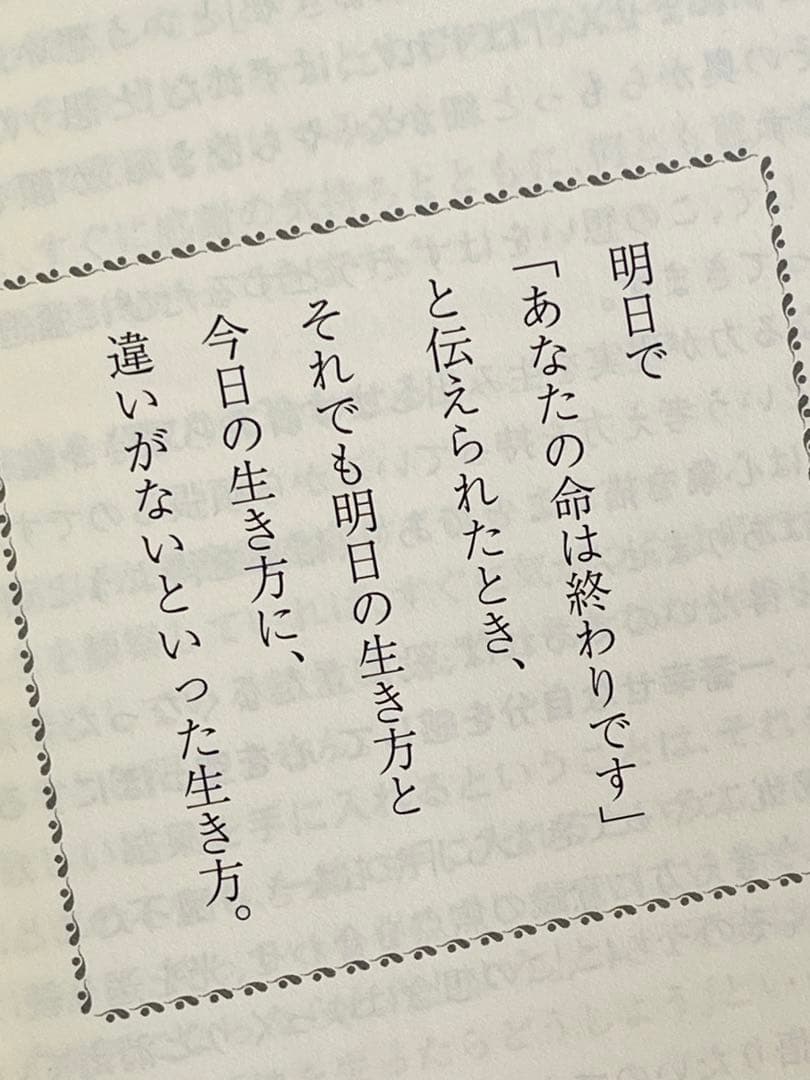 明日で
「あなたの命は終わりです」
と伝えられたとき、
それでも明日の生き方と
今日の生き方に、
違いがないといった生き方。